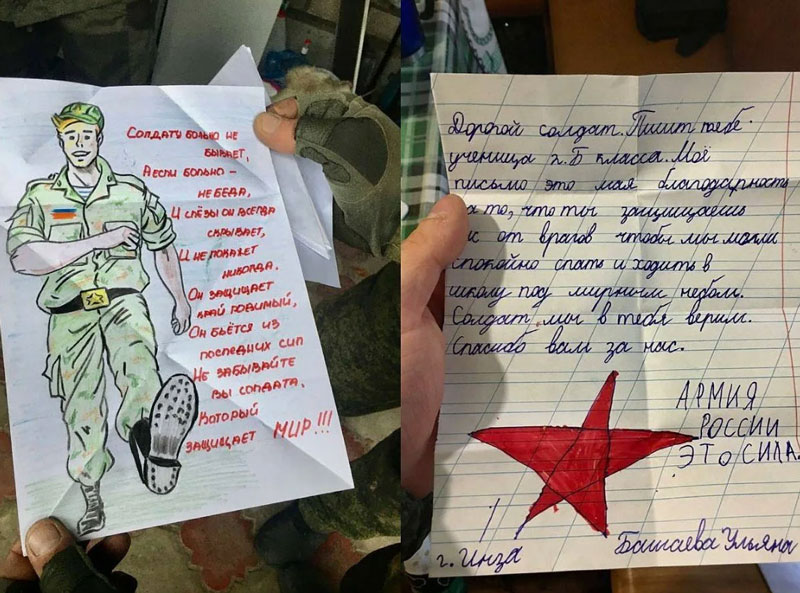 СОЛДАТУ БОЛЬНО НЕ
БЫВАЕТ,
А ЕСЛИ БОЛЬНО –
НЕ БЕДА,
И СЛЁЗЫ ОН ВСЕГДА
СКРЫВАЕТ,
И НЕ ПОКАЖЕТ
НИКОГДА.
ОН ЗАЩИЩАЕТ
КРАЙ РОДИМЫЙ,
ОН БЬЁТСЯ ИЗ
ПОСЛЕДНИХ СИЛ
НЕ ЗАБЫВАЙТЕ
ВЫ СОЛДАТА,
КОТОРЫЙ
ЗАЩИЩАЕТ МИР!!!
Дорогой солдат. Пишит тебе
ученица 2.Б класса. Моё
письмо это мая благодарность
за то, что ты защищаешь
нас от врагов чтобы мы могли
спокойно спать и ходить в
школу под мирным небом.
Солдат, мы в тебя верим.
Спасибо вам за нас.
АРМИЯ
РОССИИ
ЭТО СИЛА.
г. Инза
Ульяна